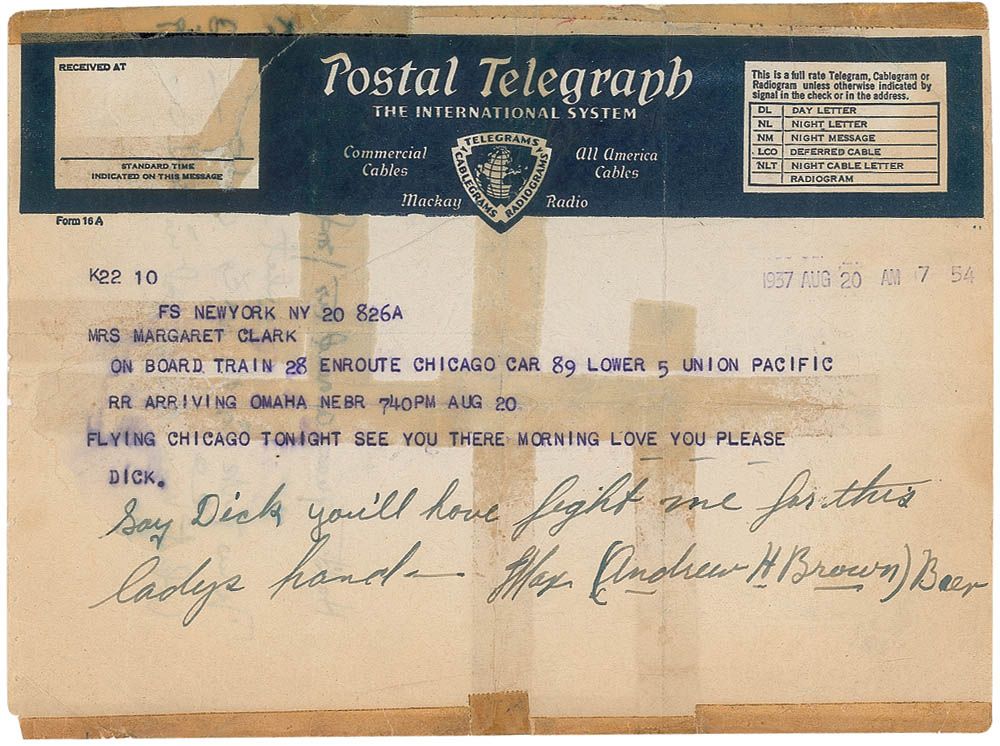 RECEIVED AT
STANDARD TIME
INDICATED ON THIS MESSAGE
Postal Telegraph
THE INTERNATIONAL SYSTEM
Commercial Cables
All America Cables
TELEGRAMS
CABLEGRAMS
RADIOGRAMS
Mackay Radio
This is a full rate Telegram, Cablegram or
Radiogram unless otherwise indicated by
signal in the check or in the address.
DL DAY LETTER
NL NIGHT LETTER
NM NIGHT MESSAGE
LCO DEFERRED CABLE
NLT NIGHT CABLE LETTER
RADIOGRAM
Form 16 A
K22 10
1937 AUG 20 AM 7 54
FS NEWYORK NY 20 826A
MRS MARGARET CLARK
ON BOARD TRAIN 28 ENROUTE CHICAGO CAR 89 LOWER 5 UNION PACIFIC
RR ARRIVING OMAHA NEBR 740PM AUG 20
FLYING CHICAGO TONIGHT SEE YOU THERE MORNING LOVE YOU PLEASE
DICK.
Say Dick you'll have fight me for this
ladys hand — Max (Andrew H Brown) Baer